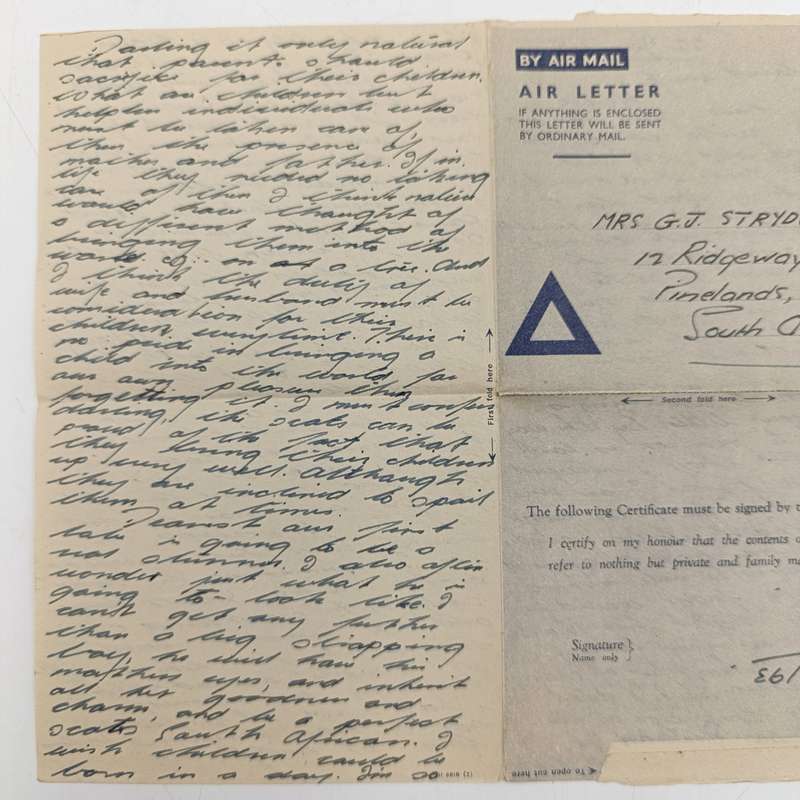 Darling it only natural
that parents should
sacrifice for their children.
What are children but
helpless individuals who
must be taken care of,
then the presence of
mother and father. If in
life they needed no taking
care of then I think nature
would have thought of
a different method of
bringing them into the
world e.g. on a tree. And
I think the duty of
wife and husband must be
consideration for their
children everytime. There is
no pride in bringing a
child into the world for
our own pleasure then
forgetting it. I must confess
darling, the scots can be
proud of the fact that
they bring their children
up very well. Although
they are inclined to spoil
them at times.
Dearest our first
baby is going to be a
real stunner. I also often
wonder just what he is
going to look like. I
can't get any further
than a big strapping
boy, he will have his
mothers eyes, and inherit
all her goodness and
charm, and be a perfect
scots South African. I
wish children could be
born in a day. I'm so
First fold here
BY AIR MAIL
AIR LETTER
IF ANYTHING IS ENCLOSED
THIS LETTER WILL BE SENT
BY ORDINARY MAIL.
MRS G.J. STRYD
12 Ridgeway
Pinelands,
South
Second fold here
The following Certificate must be signed by
I certify on my honour that the contents
refer to nothing but private and family
Signature
Name only
To open cut here